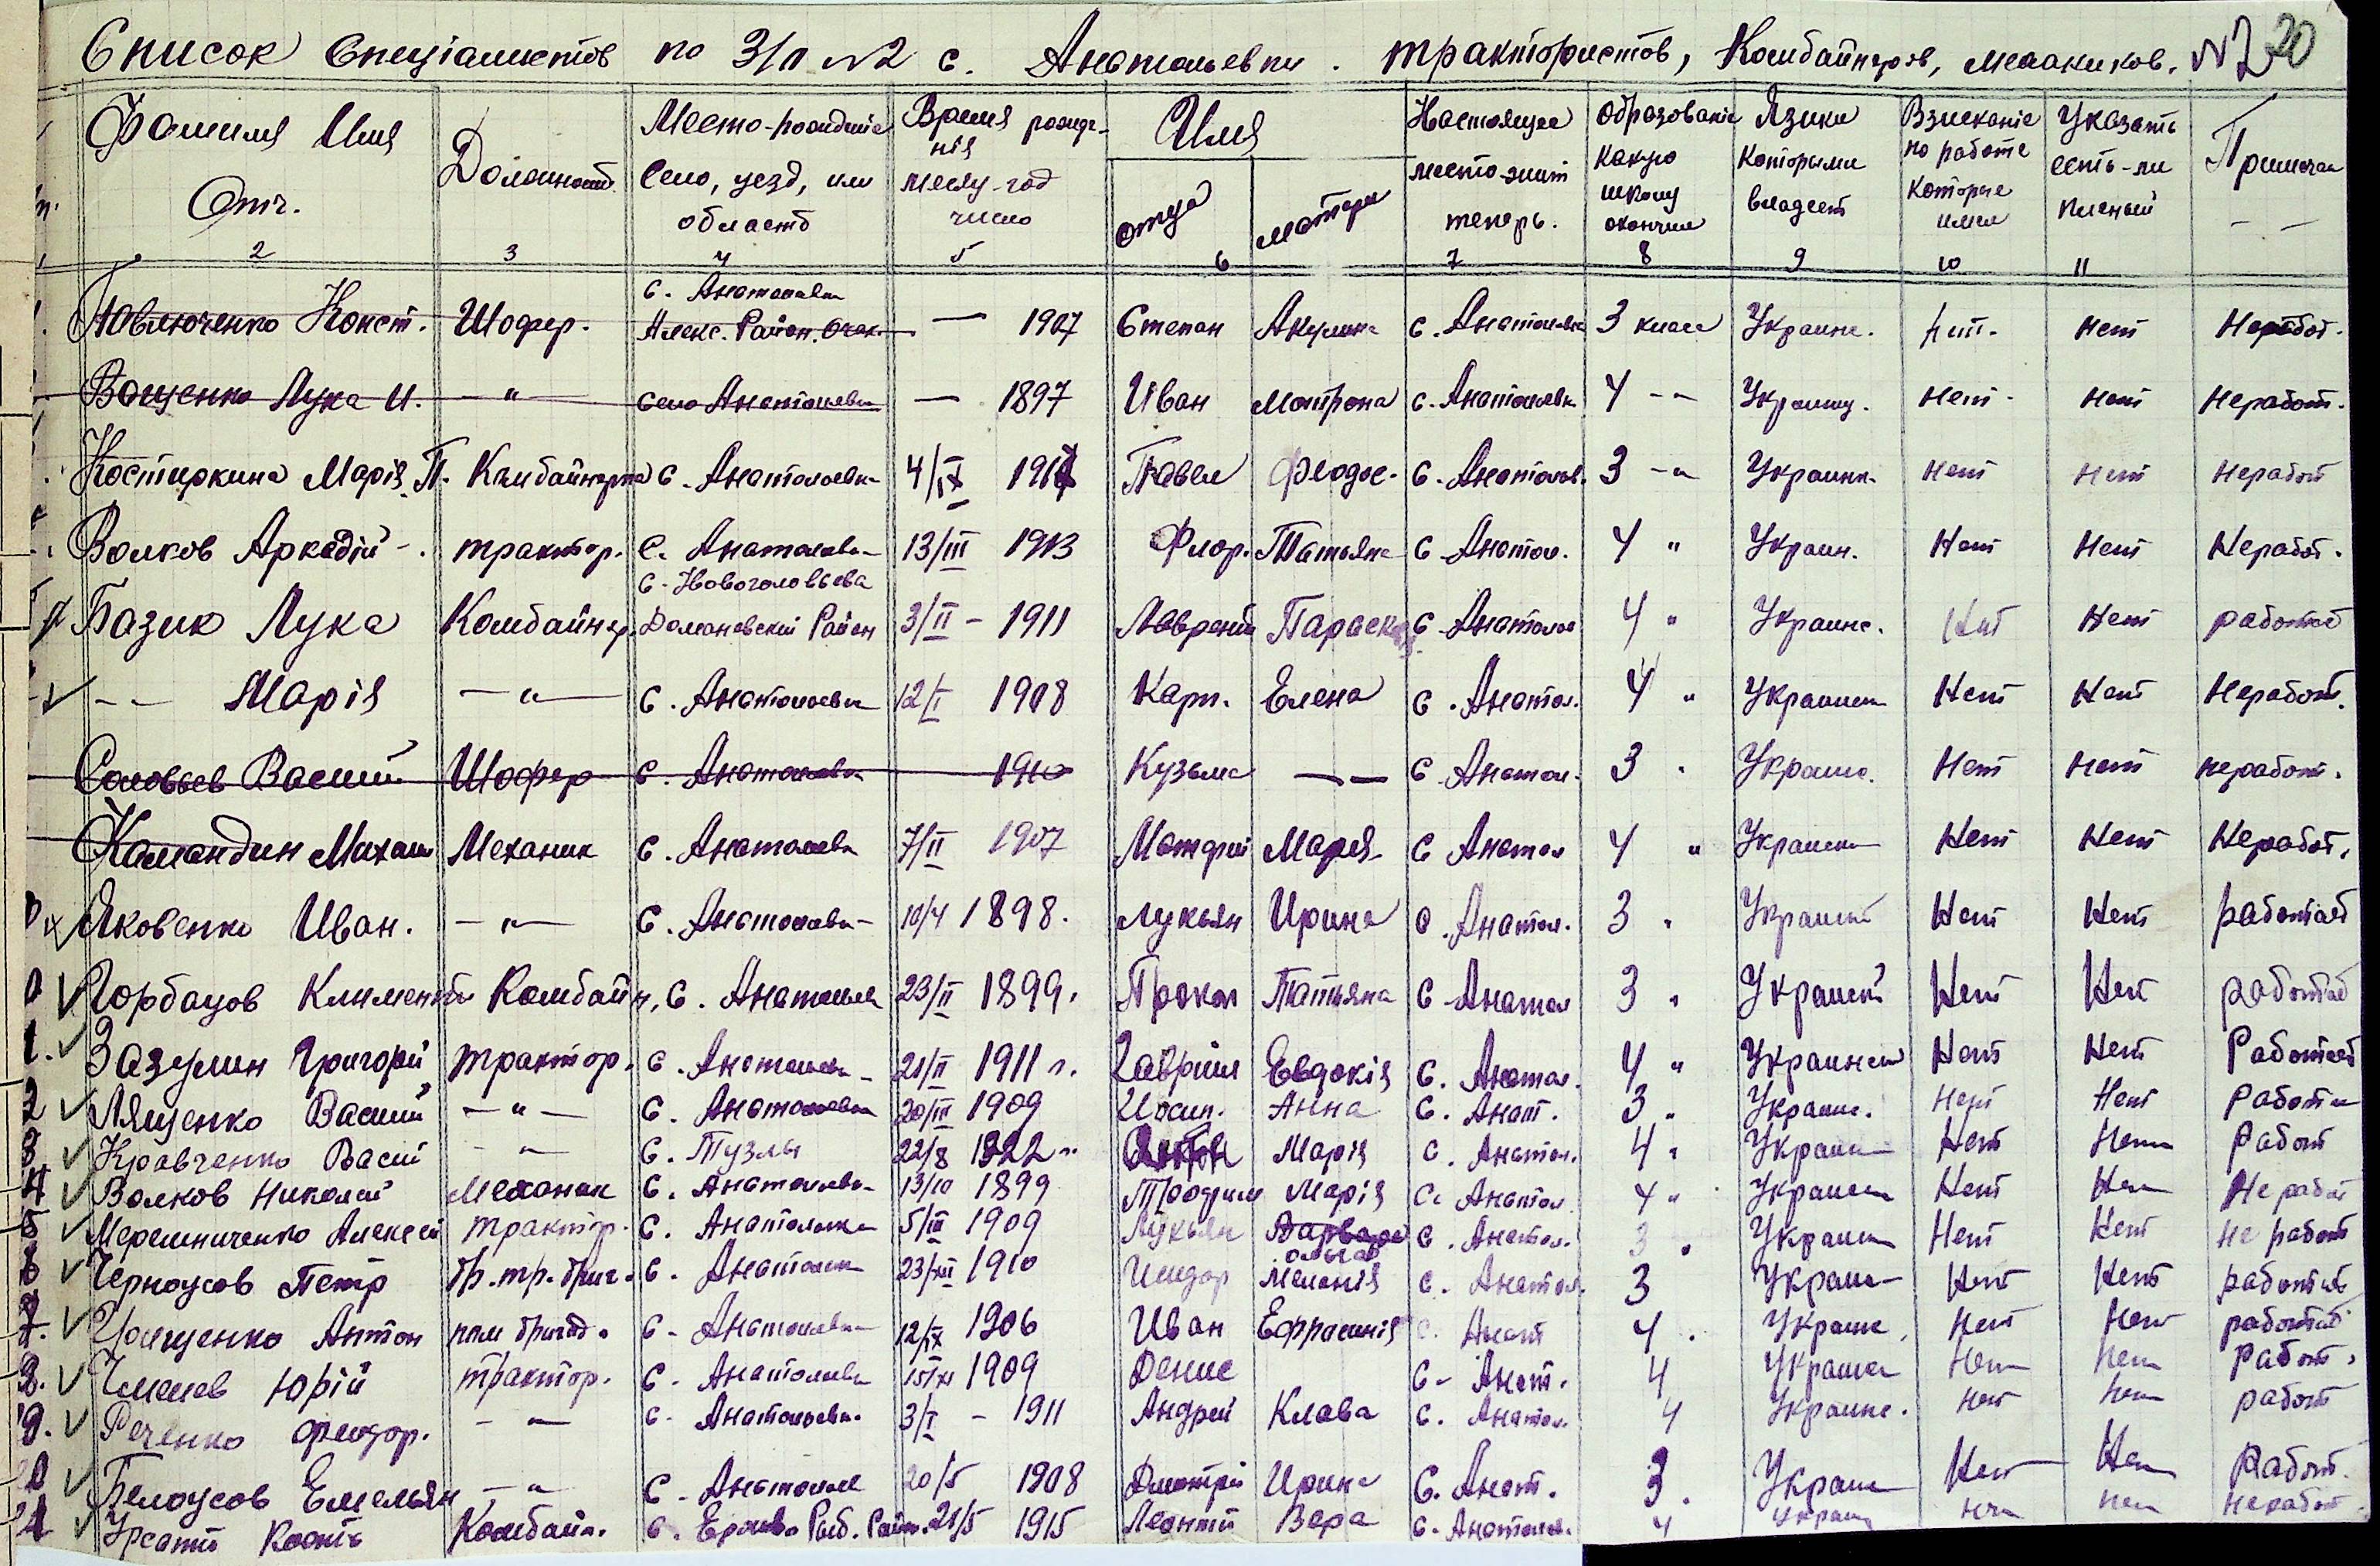 Список Специалистов по З/п №2 с. Анатольевки. трактористов, Комбайнеров, механиков. №2 20
Фамилия Имя Отч. Должност. Место-рождение Село, уезд, или область Время рожде-ния месяц-год число Имя отца матери Настоящее место-жит теперь. Образованіе какую школу окончил Языки которыми владеет Взисканіе по работе которые имел Указать есть-ли пленый Примечан
2 3 4 5 6 7 8 9 10 11
Павлюченко Конст. Шофер. с. Анатолевка Алекс. Район. Очак. — 1907 Степан Акулина с. Анатольевка 3 класа Украинс. нет. нет Неработ.
Ващенко Лука И. — " — село Анатольевка — 1897 Иван Матрона с. Анатольевк. 4 -- Украинц. Нет - нет Неработ.
Костиркина Марія П. Комбайнерка с. Анатолоевка 4/IX 191 Павел Феодос. с. Анатолов. 3 -" Украинк. нет нет неработ
Волков Аркадій - . трактор. с. Анатолевк- 13/III 1913 Флор. Татьяна с Анатол. 4 " Украин. Нет Нет Неработ.
Базик Лука Комбайнер. с. Новоголовьева Домановский Район 3/II - 1911 Лаврентій Параскев с Анатолов 4 " Украинс. Нет Нет работает
-- Марія — " — с. Анатольевка 12/I 1908 Карп. Елена с. Анатол. 4 " Украинск Нет Нет Неработ.
Соловьев Василий Шофер с. Анатольевка 1910 Кузьма —— с Анатол. 3 " Украинс. Нет нет неработ.
Командин Михаил Механик с. Анатолевк 7/II 1907 Матфей Мария с Анатол 4 " Украинск Нет Нет Неработ.
Яковенко Иван. — " — с. Анатолевк- 10/4 1898. Лукьян Ирина с. Анатол. 3 " Украинск Нет Нет работает
Горбацов Климентий Комбайн. с. Анатольев 23/II 1899. Прокоп Татьяна с Анатол 3 " Украинск Нет Нет работает
1. Зазулин Григорій трактор. с. Анатольевк- 21/II 1911 г. Гавриил Евдокія с. Анатол. 4 " Украинск Нет Нет Работает
2 Лященко Василий — " — с. Анатольевка 20/III 1909 Иосип. Анна с. Анат. 3 " Украинс. Нет Нет Работа
3 Кравченко Васил — " — с. Тузлы 22/8 1922 г. Марія с. Анатол. 4 " Украинс Нет Нет Работ
4 Волков Николай механик с. Анатолевк- 13/10 1899 Трофим Марія с. Анатол 4 " Украинск Нет Нет Не работ
5 Мерешниченко Алексей трактор. с. Анатолевка 5/III 1909 Лукьян Варвара с. Анатол. 3 " Украинск Нет Нет не работ
6 Черноусов Петр бр. тр. бриг. с. Анатольевк 23/XII 1910 Исидор Меланія с. Анатол. 3 Украинс Нет Нет работает
7. Грищенко Антон пом бригад. с. Анатольевк- 12/IX 1906 Иван Ефрасинія с. Анат 4 . Украинс. Нет Нет работает
8. Юрій трактор. с. Анатольевк 15/XI 1909 Денис с. Анат. 4 Украинск Нет Нет Работ.
9. Реченко Феодор. — " с. Анатольевк. 3/I - 1911 Андрей Клава с. Анатол. 4 Украинс. нет нет работ
20 Белоусов Емельян — " с. Анатольев 20/5 1908 Дмитрій Ирина с. Анат. 3. Украинс Нет Нет Работ.
21 Урсатій Комбайн. с. Раб. Район. 21/5 1915 Леонтій Вера с. Анатолев. 4 украинц нет нет неработ.